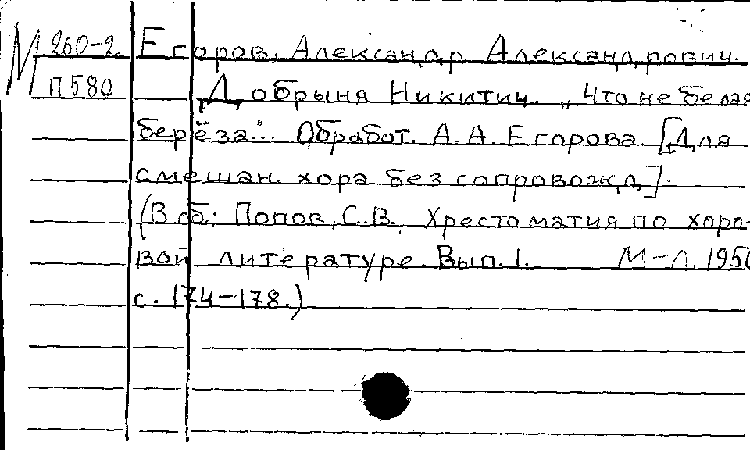 М 260-2 Егоров, Александр Александрович.
П580 Добрыня Никитич. „Что не белая
берёза". Обработ. А. А. Егорова. [Для
смешан. хора без сопровожд.].
(В сб: Попов, С. В. Хрестоматия по хоро-
вой литературе. Вып. 1. М-Л. 1950
с. 174-178.)